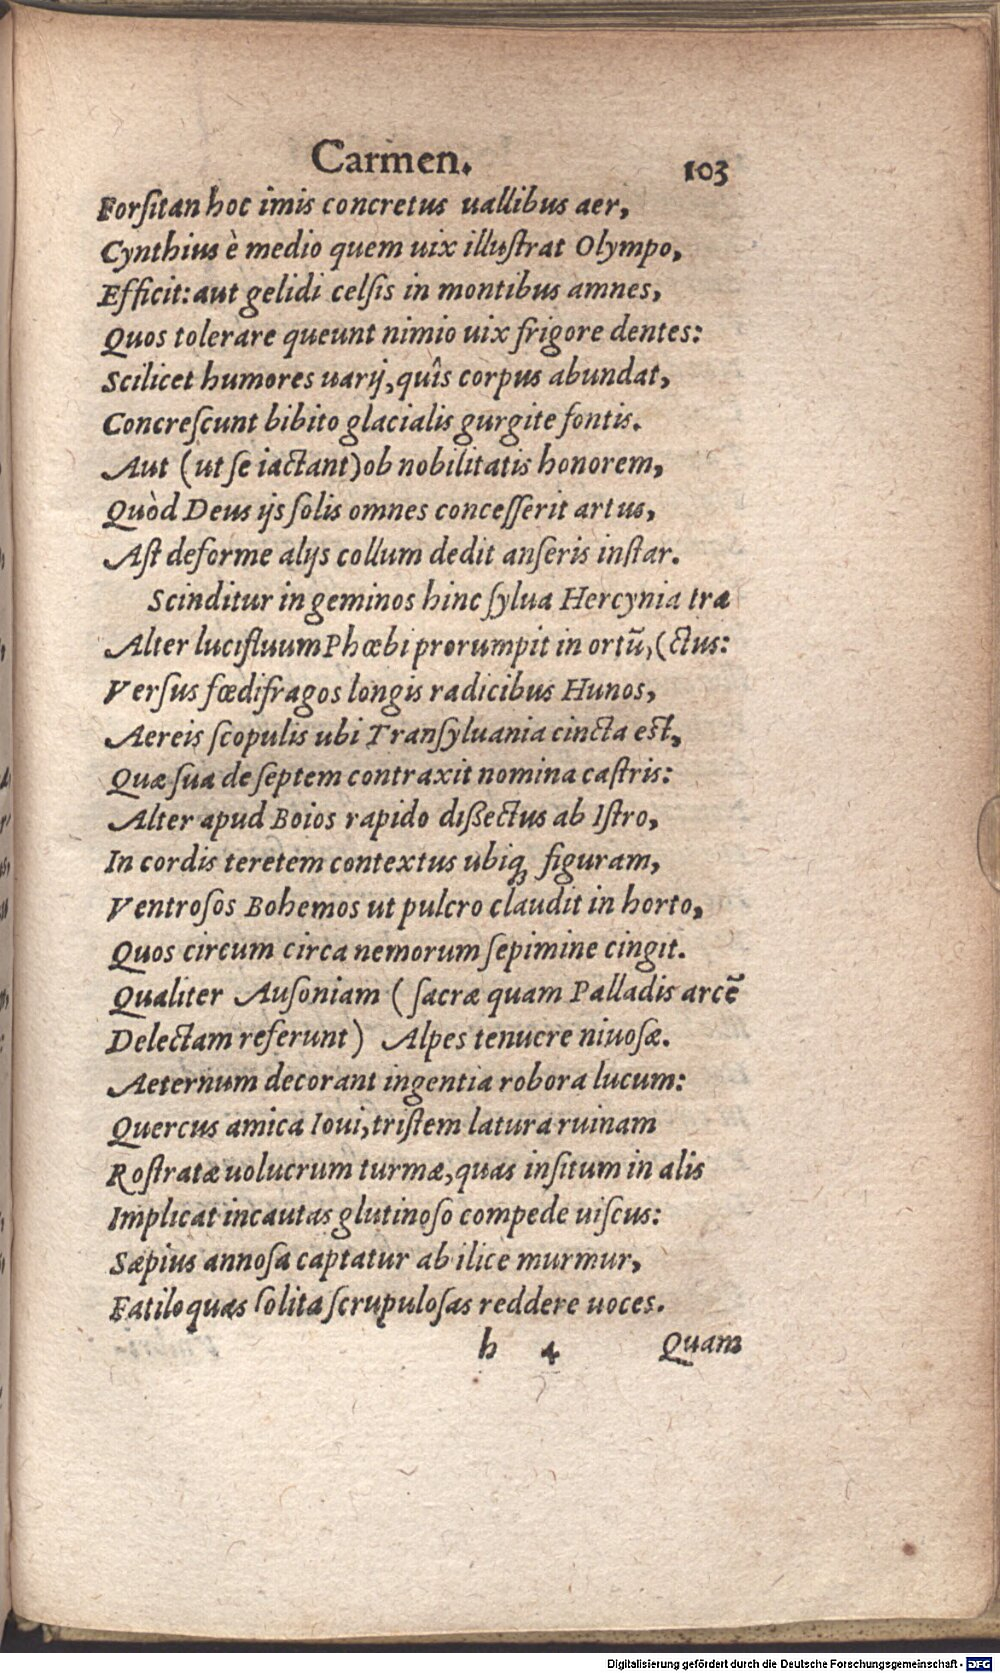 Carmen. 103
Forſitan hoc imis concretus uallibus aer,
Cynthius è medio quem uix illuſtrat Olympo,
Efficit: aut gelidi celſis in montibus amnes,
Quos tolerare queunt nimio uix frigore dentes:
Scilicet humores uarij, quîs corpus abundat,
Concreſcunt bibito glacialis gurgite fontis.
Aut (ut ſe iactant) ob nobilitatis honorem,
Quòd Deus ijs ſolis omnes conceſſerit artus,
Aſt deforme alijs collum dedit anſeris inſtar.
Scinditur in geminos hinc ſylua Hercynia tra
Alter lucifluum Phœbi prorumpit in ortũ, (ctus:
Verſus fœdifragos longis radicibus Hunos,
Aereis ſcopulis ubi Tranſyluania cincta eſt,
Quæ ſua de ſeptem contraxit nomina caſtris:
Alter apud Boios rapido dißectus ab Iſtro,
In cordis teretem contextus ubiq; figuram,
Ventroſos Bohemos ut pulcro claudit in horto,
Quos circum circa nemorum ſepimine cingit.
Qualiter Auſoniam (ſacræ quam Palladis arcẽ
Delectam referunt) Alpes tenuere niuoſæ.
Aeternum decorant ingentia robora lucum:
Quercus amica Ioui, triſtem latura ruinam
Roſtratæ uolucrum turmæ, quas inſitum in alis
Implicat incautas glutinoſo compede uiſcus:
Sæpius annoſa captatur ab ilice murmur,
Fatiloquas ſolita ſcrupuloſas reddere uoces.
h 4 Quam
Digitalisierung gefördert durch die Deutsche Forschungsgemeinschaft - DFG